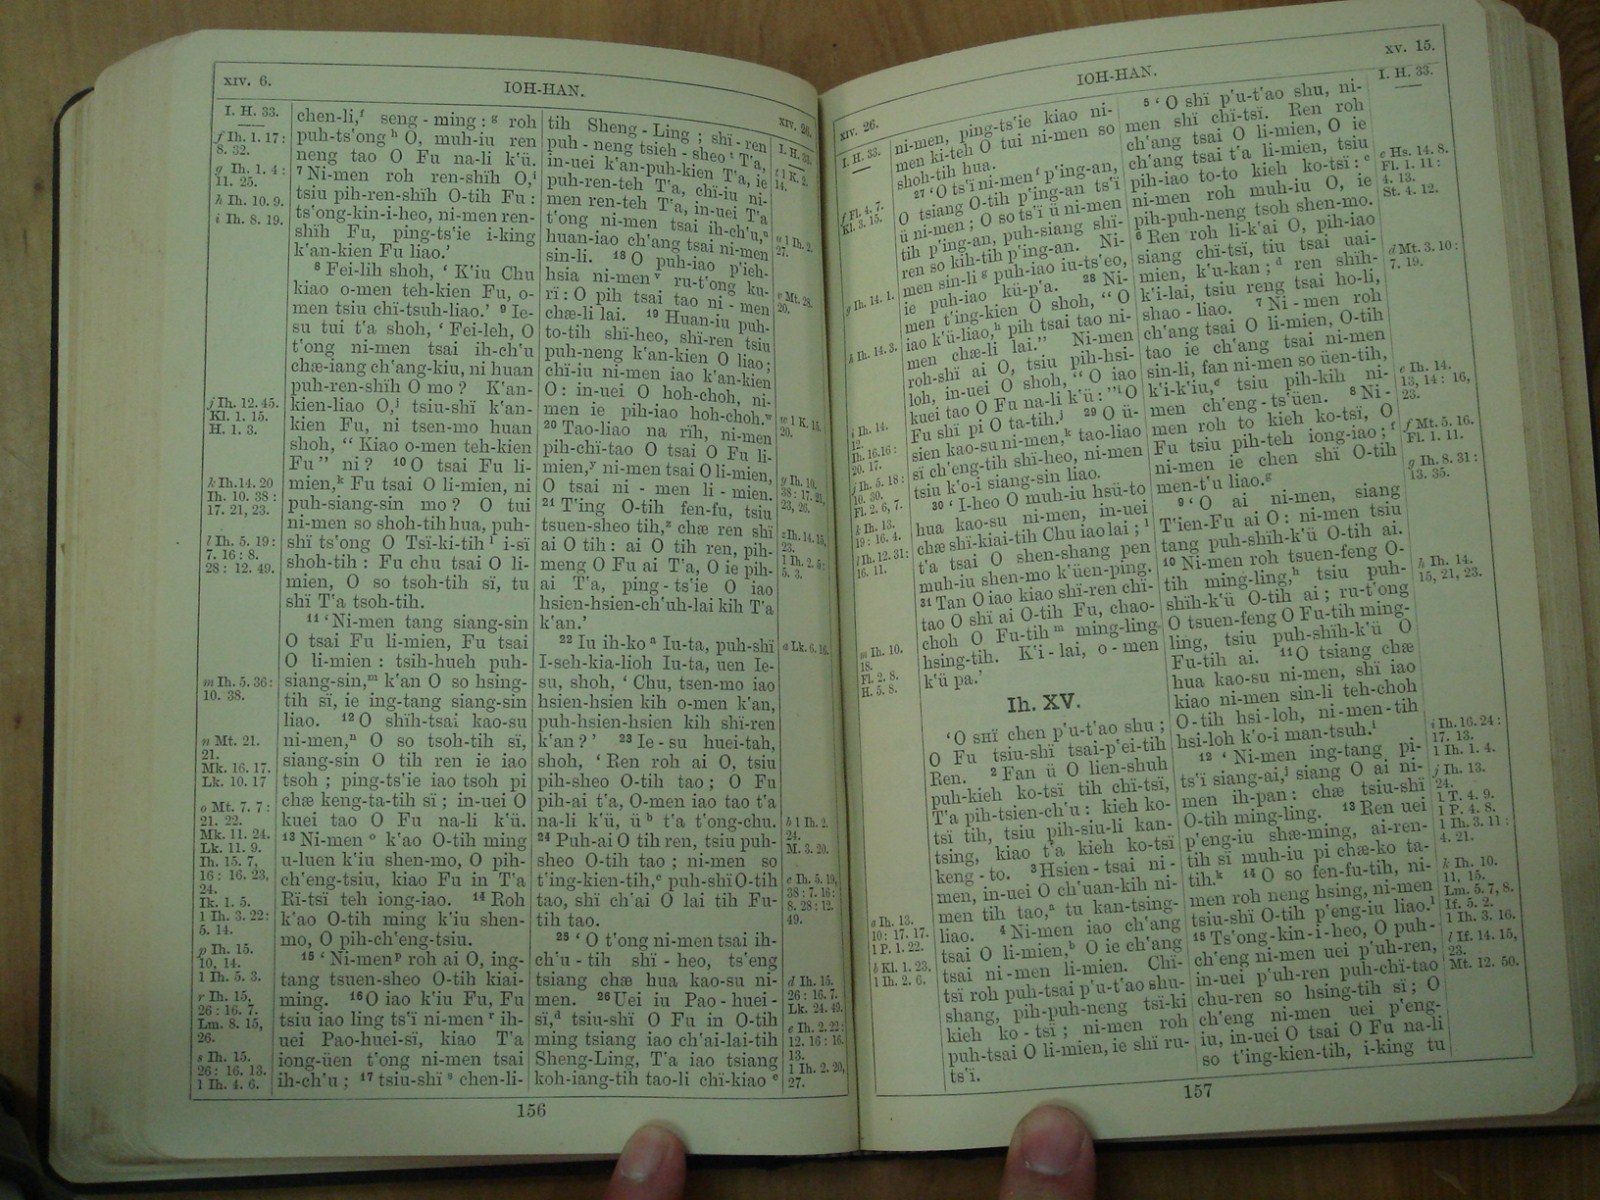 XIV. 6.
IOH-HAN.
XIV. 26.
I. H. 33.
f Ih. 1. 17:
8. 32.
g Ih. 1. 4:
11. 25.
h Ih. 10. 9.
i Ih. 8. 19.
j Ih. 12. 45.
Kl. 1. 15.
H. 1. 3.
k Ih. 14. 20
Ih. 10. 38:
17. 21, 23.
l Ih. 5. 19:
7. 16: 8.
28: 12. 49.
m Ih. 5. 36:
10. 38.
n Mt. 21.
21.
Mk. 16. 17.
Lk. 10. 17
o Mt. 7. 7:
21. 22.
Mk. 11. 24.
Lk. 11. 9.
Ih. 15. 7,
16: 16. 23,
24.
Ik. 1. 5.
1 Ih. 3. 22:
5. 14.
p Ih. 15.
10, 14.
1 Ih. 5. 3.
r Ih. 15,
26: 16. 7.
Lm. 8. 15,
26.
s Ih. 15.
26: 16. 13.
1 Ih. 4. 6.
chen-li,f seng-ming:g roh
puh-ts'ong h O, muh-iu ren
neng tao O Fu na-li k'ü.
7 Ni-men roh ren-shïh O,i
tsiu pih-ren-shïh O-tih Fu:
ts'ong-kin-i-heo, ni-men ren-
shïh Fu, ping-ts'ie i-king
k'an-kien Fu liao.'
8 Fei-lih shoh, ‘ K'iu Chu
kiao o-men teh-kien Fu, o-
men tsiu chï-tsuh-liao.' 9 Ie-
su tui t'a shoh, ‘ Fei-leh, O
t'ong ni-men tsai ih-ch'u
chæ-iang ch'ang-kiu, ni huan
puh-ren-shïh O mo ? K'an-
kien-liao O,j tsiu-shï k'an-
kien Fu, ni tsen-mo huan
shoh, “ Kiao o-men teh-kien
Fu ” ni ? 10 O tsai Fu li-
mien,k Fu tsai O li-mien, ni
puh-siang-sin mo ? O tui
ni-men so shoh-tih hua, puh-
shï ts'ong O Tsï-ki-tih l i-sï
shoh-tih : Fu chu tsai O li-
mien, O so tsoh-tih sï, tu
shï T'a tsoh-tih.
11 ‘ Ni-men tang siang-sin
O tsai Fu li-mien, Fu tsai
O li-mien : tsih-hueh puh-
siang-sin,m k'an O so hsing-
tih sï, ie ing-tang siang-sin
liao. 12 O shïh-tsai kao-su
ni-men,n O so tsoh-tih sï,
siang-sin O tih ren ie iao
tsoh ; ping-ts'ie iao tsoh pi
chæ keng-ta-tih sï ; in-uei O
kuei tao O Fu na-li k'ü.
13 Ni-men o k'ao O-tih ming
u-luen k'iu shen-mo, O pih-
ch'eng-tsiu, kiao Fu in T'a
Rï-tsï teh iong-iao. 14 Roh
k'ao O-tih ming k'iu shen-
mo, O pih-ch'eng-tsiu.
15 ‘ Ni-men p roh ai O, ing-
tang tsuen-sheo O-tih kiai-
ming. 16 O iao k'iu Fu, Fu
tsiu iao ling ts'ï ni-men r ih-
uei Pao-huei-sï, kiao T'a
iong-üen t'ong ni-men tsai
ih-ch'u ; 17 tsiu-shï s chen-li-
tih Sheng-Ling ; shï-ren
puh-neng tsieh-sheo t T'a,
in-uei k'an-puh-kien T'a, ie
puh-ren-teh T'a, chï-iu ni-
men ren-teh T'a, in-uei T'a
t'ong ni-men tsai ih-ch'u,u
huan-iao ch'ang tsai ni-men
sin-li. 18 O puh-iao p'ieh-
hsia ni-men v ru-t'ong ku-
rï : O pih tsai tao ni-men
chæ-li lai. 19 Huan-iu puh-
to-tih shï-heo, shï-ren tsiu
puh-neng k'an-kien O liao ;
chï-iu ni-men iao k'an-kien
O : in-uei O hoh-choh, ni-
men ie pih-iao hoh-choh.w
20 Tao-liao na rïh, ni-men
pih-chï-tao O tsai O Fu li-
mien,y ni-men tsai O li-mien,
O tsai ni-men li-mien.
21 T'ing O-tih fen-fu, tsiu
tsuen-sheo tih,z chæ ren shï
ai O tih : ai O tih ren, pih-
meng O Fu ai T'a, O ie pih-
ai T'a, ping-ts'ie O iao
hsien-hsien-ch'uh-lai kih T'a
k'an.'
22 Iu ih-ko a Iu-ta, puh-shï
I-seh-kia-lioh Iu-ta, uen Ie-
su, shoh, ‘ Chu, tsen-mo iao
hsien-hsien kih o-men k'an,
puh-hsien-hsien kih shï-ren
k'an ? ' 23 Ie-su huei-tah,
shoh, ‘ Ren roh ai O, tsiu
pih-sheo O-tih tao ; O Fu
pih-ai t'a, O-men iao tao t'a
na-li k'ü, ü b t'a t'ong-chu.
24 Puh-ai O tih ren, tsiu puh-
sheo O-tih tao ; ni-men so
t'ing-kien-tih,c puh-shï O-tih
tao, shï ch'ai O lai tih Fu-
tih tao.
25 ‘ O t'ong ni-men tsai ih-
ch'u-tih shï-heo, ts'eng
tsiang chæ hua kao-su ni-
men. 26 Uei iu Pao-huei-
sï,d tsiu-shï O Fu in O-tih
ming tsiang iao ch'ai-lai-tih
Sheng-Ling, T'a iao tsiang
koh-iang-tih tao-li chï-kiao e
I. H. 33.
t 1 K. 2.
14.
u 1 Ih. 2.
27.
v Mt. 28.
20.
w 1 K. 15.
20.
y Ih. 10.
38: 17. 21,
23, 26.
z Ih. 14. 15,
23.
1 Ih. 2. 5:
5. 3.
a Lk. 6. 16.
b 1 Ih. 2.
24.
M. 3. 20.
c Ih. 5. 19,
38: 7. 16:
8. 28: 12.
49.
d Ih. 15.
26: 16. 7.
Lk. 24. 49.
e Ih. 2. 22:
12. 16: 16.
13.
1 Ih. 2. 20,
27.
156
XIV. 26.
IOH-HAN.
XV. 15.
I. H. 33.
f Fl. 4. 7.
Kl. 3. 15.
g Ih. 14. 1.
h Ih. 14. 3.
i Ih. 14.
12.
Ih. 16.16:
20. 17.
j Ih. 5. 18:
10. 30.
Fl. 2. 6, 7.
k Ih. 13.
19: 16. 4.
l Ih. 12. 31:
16. 11.
m Ih. 10.
18.
Fl. 2. 8.
H. 5. 8.
a Ih. 13.
10: 17. 17.
1 P. 1. 22.
b Kl. 1. 23.
1 Ih. 2. 6.
ni-men, ping-ts'ie kiao ni-
men ki-teh O tui ni-men so
shoh-tih hua.
27 ‘ O ts'ï ni-men f p'ing-an,
O tsiang O-tih p'ing-an ts'ï
ü ni-men ; O so ts'ï ü ni-men
tih p'ing-an, puh-siang shï-
ren so kih-tih p'ing-an. Ni-
men sin-li g puh-iao iu-ts'eo,
ie puh-iao kü-p'a. 28 Ni-
men t'ing-kien O shoh, “ O
iao k'ü-liao,h pih tsai tao ni-
men chæ-li lai.” Ni-men
roh-shï ai O, tsiu pih-hsi-
loh, in-uei O shoh, “ O iao
kuei tao O Fu na-li k'ü : ” i O
Fu shï pi O ta-tih.j 29 O ü-
sien kao-su ni-men,k tao-liao
sï ch'eng-tih shï-heo, ni-men
tsiu k'o-i siang-sin liao.
30 ‘ I-heo O muh-iu hsü-to
hua kao-su ni-men, in-uei
chæ shï-kiai-tih Chu iao lai ; l
t'a tsai O shen-shang pen
muh-iu shen-mo k'üen-ping.
31 Tan O iao kiao shï-ren chï-
tao O shï ai O-tih Fu, chao-
choh O Fu-tih m ming-ling-
hsing-tih. K'i-lai, o-men
k'ü pa.'
Ih. XV.
‘ O SHÏ chen p'u-t'ao shu ;
O Fu tsiu-shï tsai-p'ei-tih
Ren. 2 Fan ü O lien-shuh
puh-kieh ko-tsï tih chï-tsï,
T'a pih-tsien-ch'u : kieh ko-
tsï tih, tsiu pih-siu-li kan-
tsing, kiao t'a kieh ko-tsï
keng-to. 3 Hsien-tsai ni-
men, in-uei O ch'uan-kih ni-
men tih tao,a tu kan-tsing-
liao. 4 Ni-men iao ch'ang
tsai O li-mien,b O ie ch'ang
tsai ni-men li-mien. Chï-
tsï roh puh-tsai p'u-t'ao shu-
shang, pih-puh-neng tsï-ki
kieh ko-tsï ; ni-men roh
puh-tsai O li-mien, ie shï ru-
ts'ï.
5 ‘ O shï p'u-t'ao shu, ni-
men shï chï-tsï. Ren roh
ch'ang tsai O li-mien, O ie
ch'ang tsai t'a li-mien, tsiu
pih-iao to-to kieh ko-tsï : c
ni-men roh muh-iu O, ie
pih-puh-neng tsoh shen-mo.
6 Ren roh li-k'ai O, pih-iao
siang chï-tsï, tiu tsai uai-
mien, k'u-kan ; d ren shïh-
k'i-lai, tsiu reng tsai ho-li,
shao-liao. 7 Ni-men roh
ch'ang tsai O li-mien, O-tih
tao ie ch'ang tsai ni-men
sin-li, fan ni-men so üen-tih,
k'i-k'iu,e tsiu pih-kih ni-
men ch'eng-ts'üen. 8 Ni-
men roh to kieh ko-tsï, O
Fu tsiu pih-teh iong-iao ; f
ni-men ie chen shï O-tih
men-t'u liao.g
9 ‘ O ai ni-men, siang
T'ien-Fu ai O : ni-men tsiu
tang puh-shïh-k'ü O-tih ai.
10 Ni-men roh tsuen-feng O-
tih ming-ling,h tsiu puh-
shïh-k'ü O-tih ai ; ru-t'ong
O tsuen-feng O Fu-tih ming-
ling, tsiu puh-shïh-k'ü O
Fu-tih ai. 11 O tsiang chæ
hua kao-su ni-men, shï iao
kiao ni-men sin-li teh-choh
O-tih hsi-loh, ni-men-tih
hsi-loh k'o-i man-tsuh.i
12 ‘ Ni-men ing-tang pi-
ts'ï siang-ai,j siang O ai ni-
men ih-pan : chæ tsiu-shï
O-tih ming-ling. 13 Ren uei
p'eng-iu shæ-ming, ai-ren-
tih sï muh-iu pi chæ-ko ta-
tih.k 14 O so fen-fu-tih, ni-
men roh neng hsing, ni-men
tsiu-shï O-tih p'eng-iu liao.l
15 Ts'ong-kin-i-heo, O puh-
ch'eng ni-men uei p'uh-ren,
in-uei p'uh-ren puh-chï-tao
chu-ren so hsing-tih sï ; O
ch'eng ni-men uei p'eng-
iu, in-uei O tsai O Fu na-li
so t'ing-kien-tih, i-king tu
I. H. 33.
c Hs. 14. 8.
Fl. 1. 11:
4. 13.
St. 4. 12.
d Mt. 3. 10:
7. 19.
e Ih. 14.
13, 14: 16,
23.
f Mt. 5. 16.
Fl. 1. 11.
g Ih. 8. 31:
13. 35.
h Ih. 14.
15, 21, 23.
i Ih. 16. 24:
17. 13.
1 Ih. 1. 4.
j Ih. 13.
24.
1 T. 4. 9.
1 P. 4. 8.
1 Ih. 3. 11:
4. 21.
k Ih. 10.
11, 15.
Lm. 5. 7, 8.
If. 5. 2.
1 Ih. 3. 16.
l If. 14. 15,
23.
Mt. 12. 50.
157